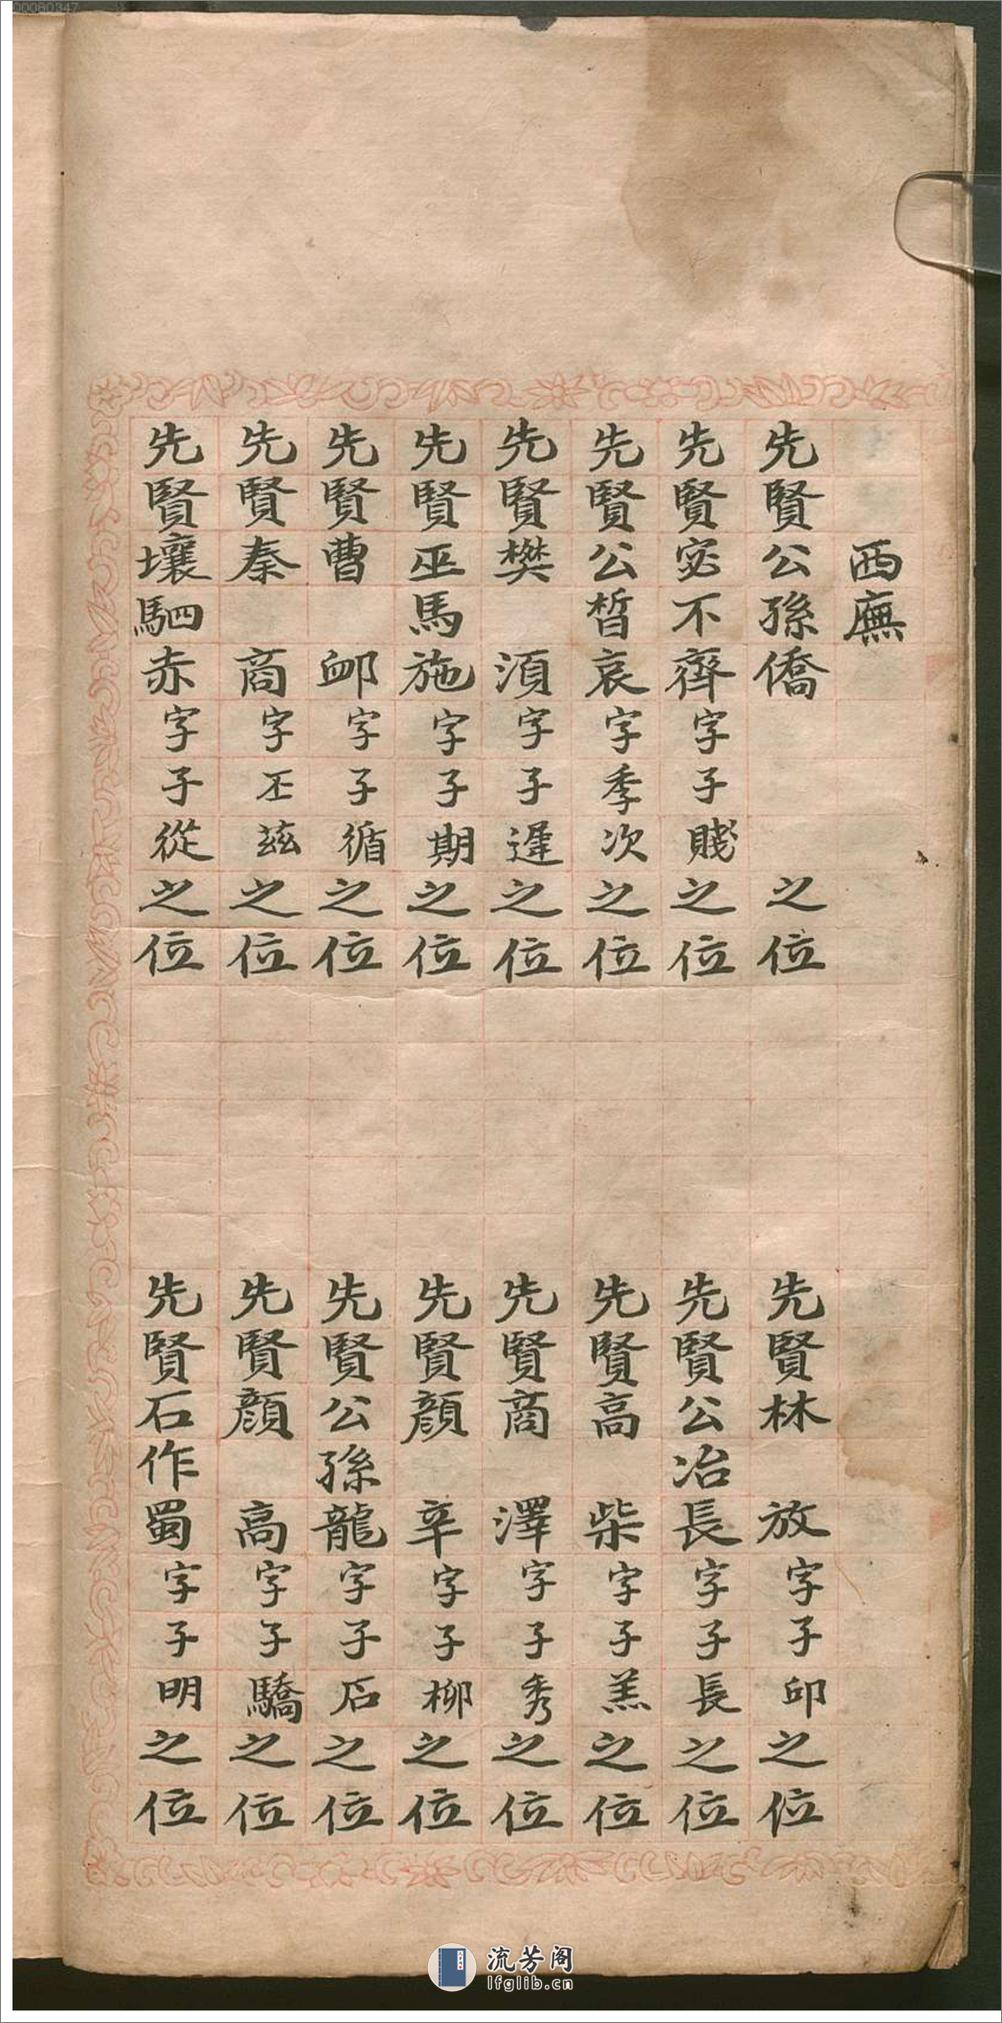 00080347
西廡
先賢公孫僑之位
先賢林放字子邱之位
先賢宓不齊字子賤之位
先賢公冶長字子長之位
先賢公皙哀字季次之位
先賢高柴字子羔之位
先賢樊須字子遲之位
先賢商澤字子秀之位
先賢巫馬施字子期之位
先賢顏辛字子柳之位
先賢曹卹字子循之位
先賢公孫龍字子石之位
先賢秦商字丕茲之位
先賢顏高字子驕之位
先賢壤駟赤字子從之位
先賢石作蜀字子明之位
流芳阁
lfglib.cn